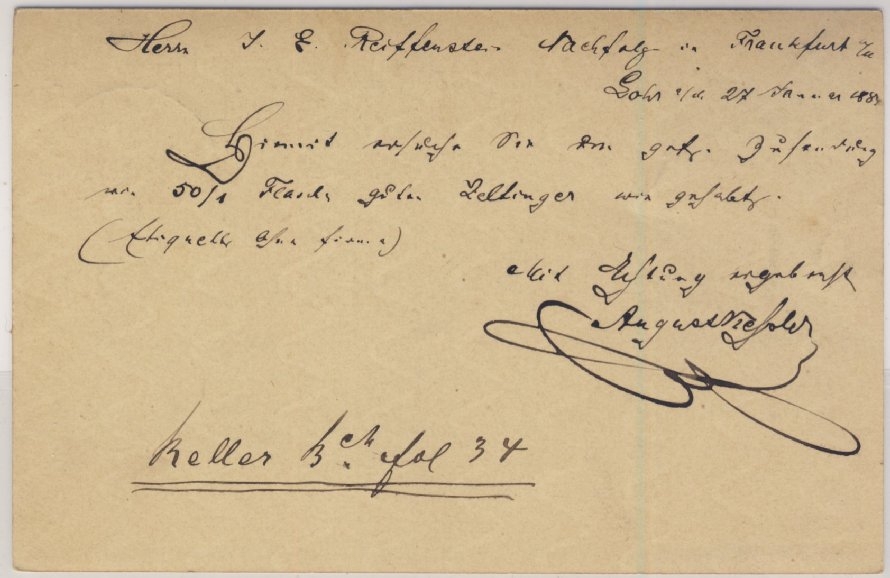 Herrn J. E. Reiffenstein Nachfolg. in Frankfurt a/m
Lohr a/M. 27 Januar 188
Hiermit ersuche Sie um gefl. Zusendung
von 50/1 Flasch. guten Zeltinger wie gehabt.
(Etiquette ohne Firma)
Mit Achtung ergebenst
August
Keller Bch fol 34